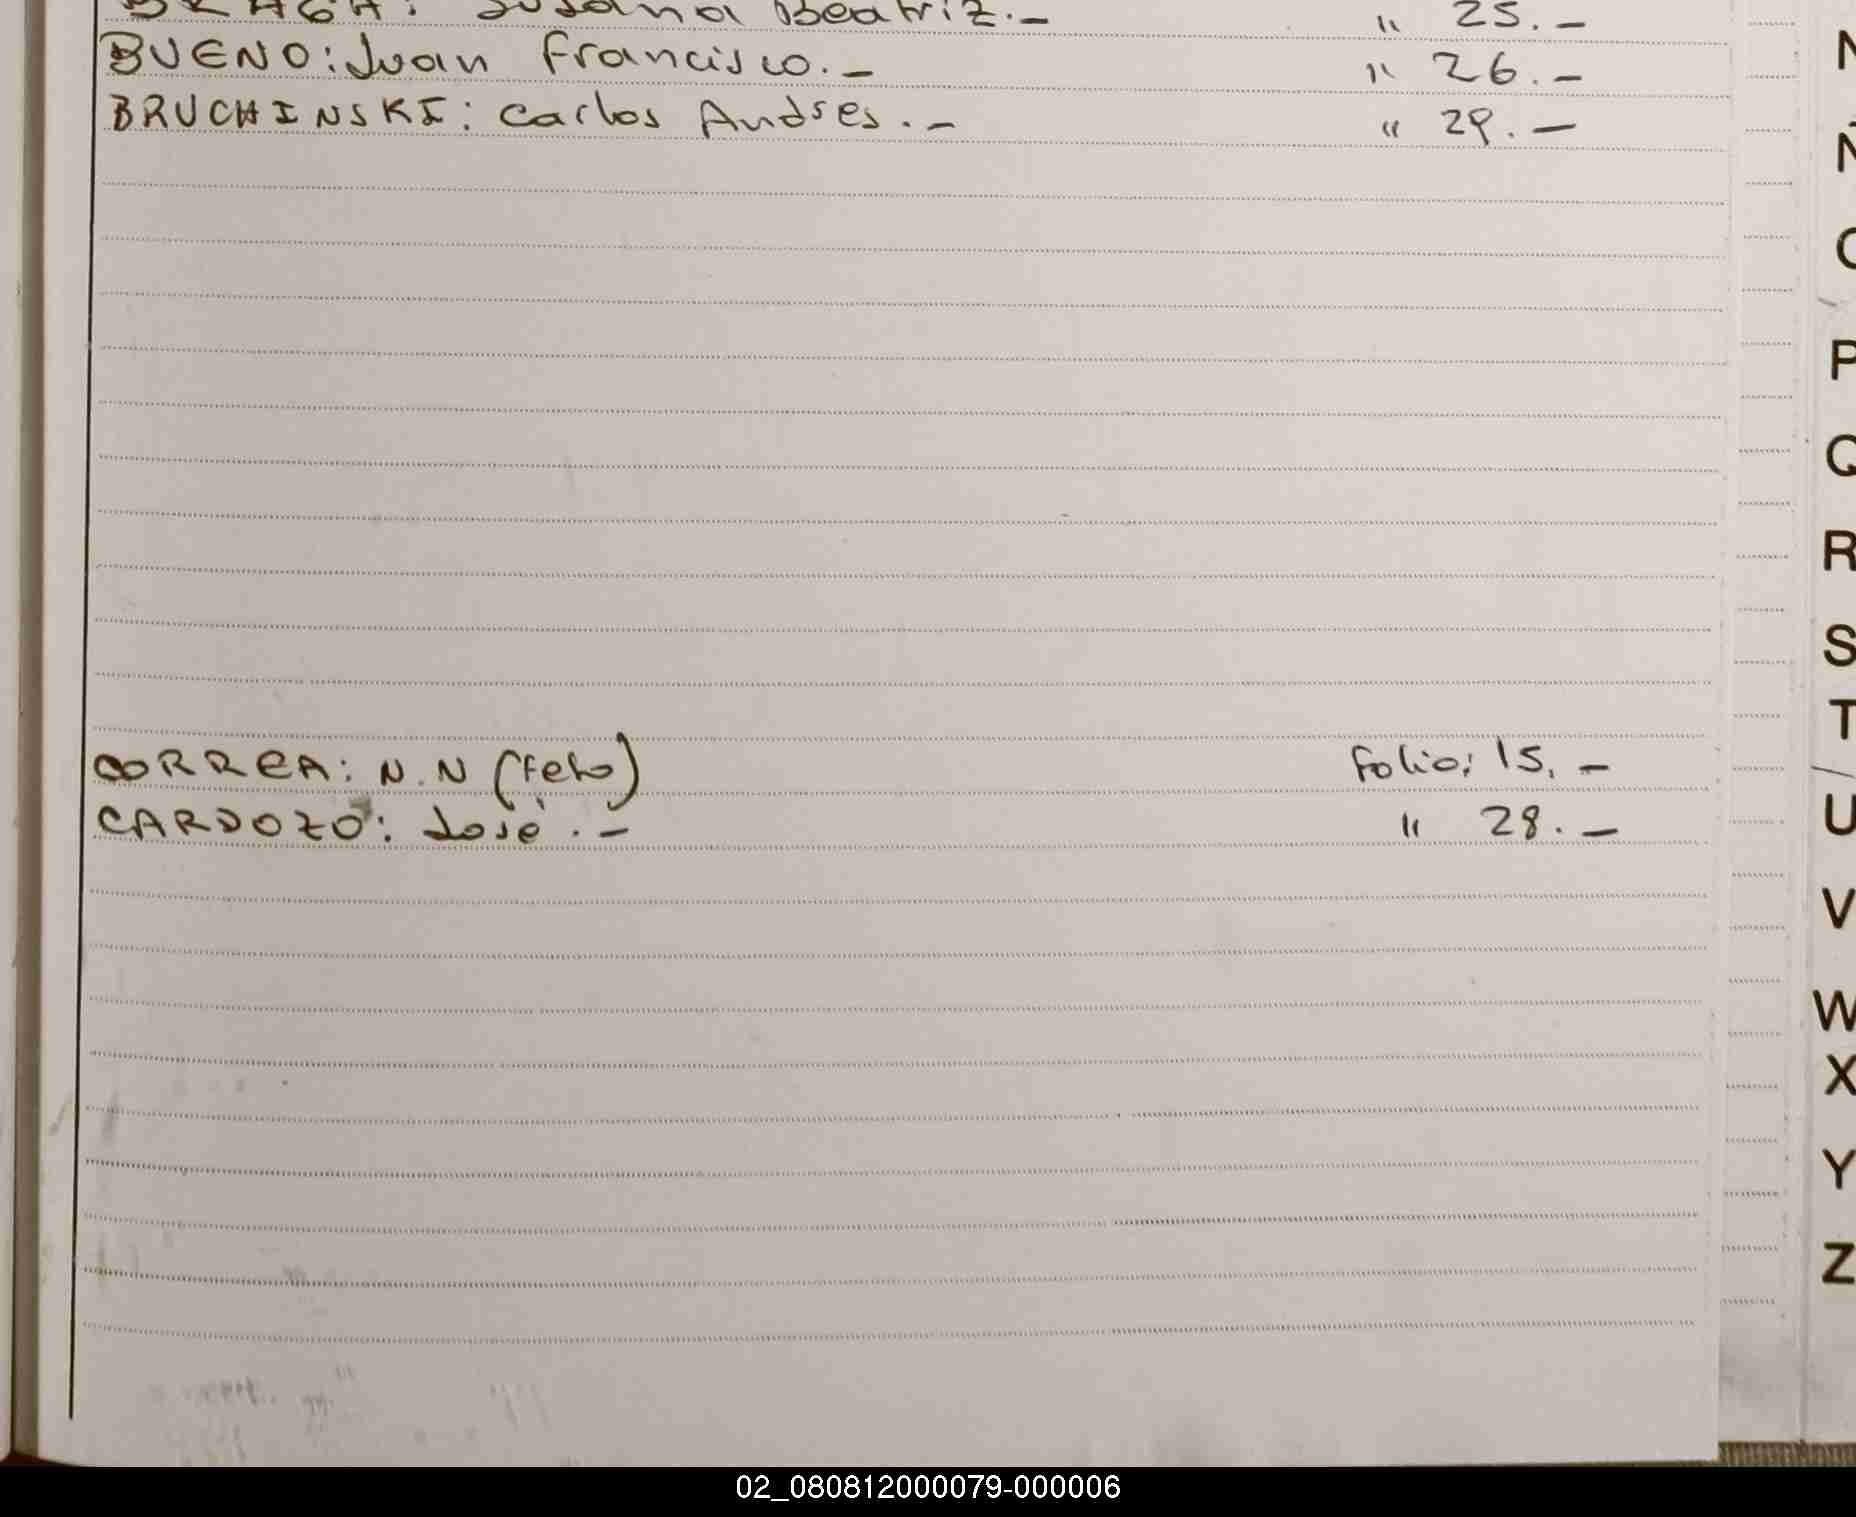 BRAGA: Susana Beatriz.— " 25.—
BUENO: Juan Francisco.— " 26.—
BRUCHINSKI: Carlos Andres.— " 29.—
CORREA: N.N (feto) Folio: 15.—
CARDOZO: José.— " 28.—
N
Ñ
O
P
Q
R
S
T
U
V
W
X
Y
Z
02_080812000079-000006